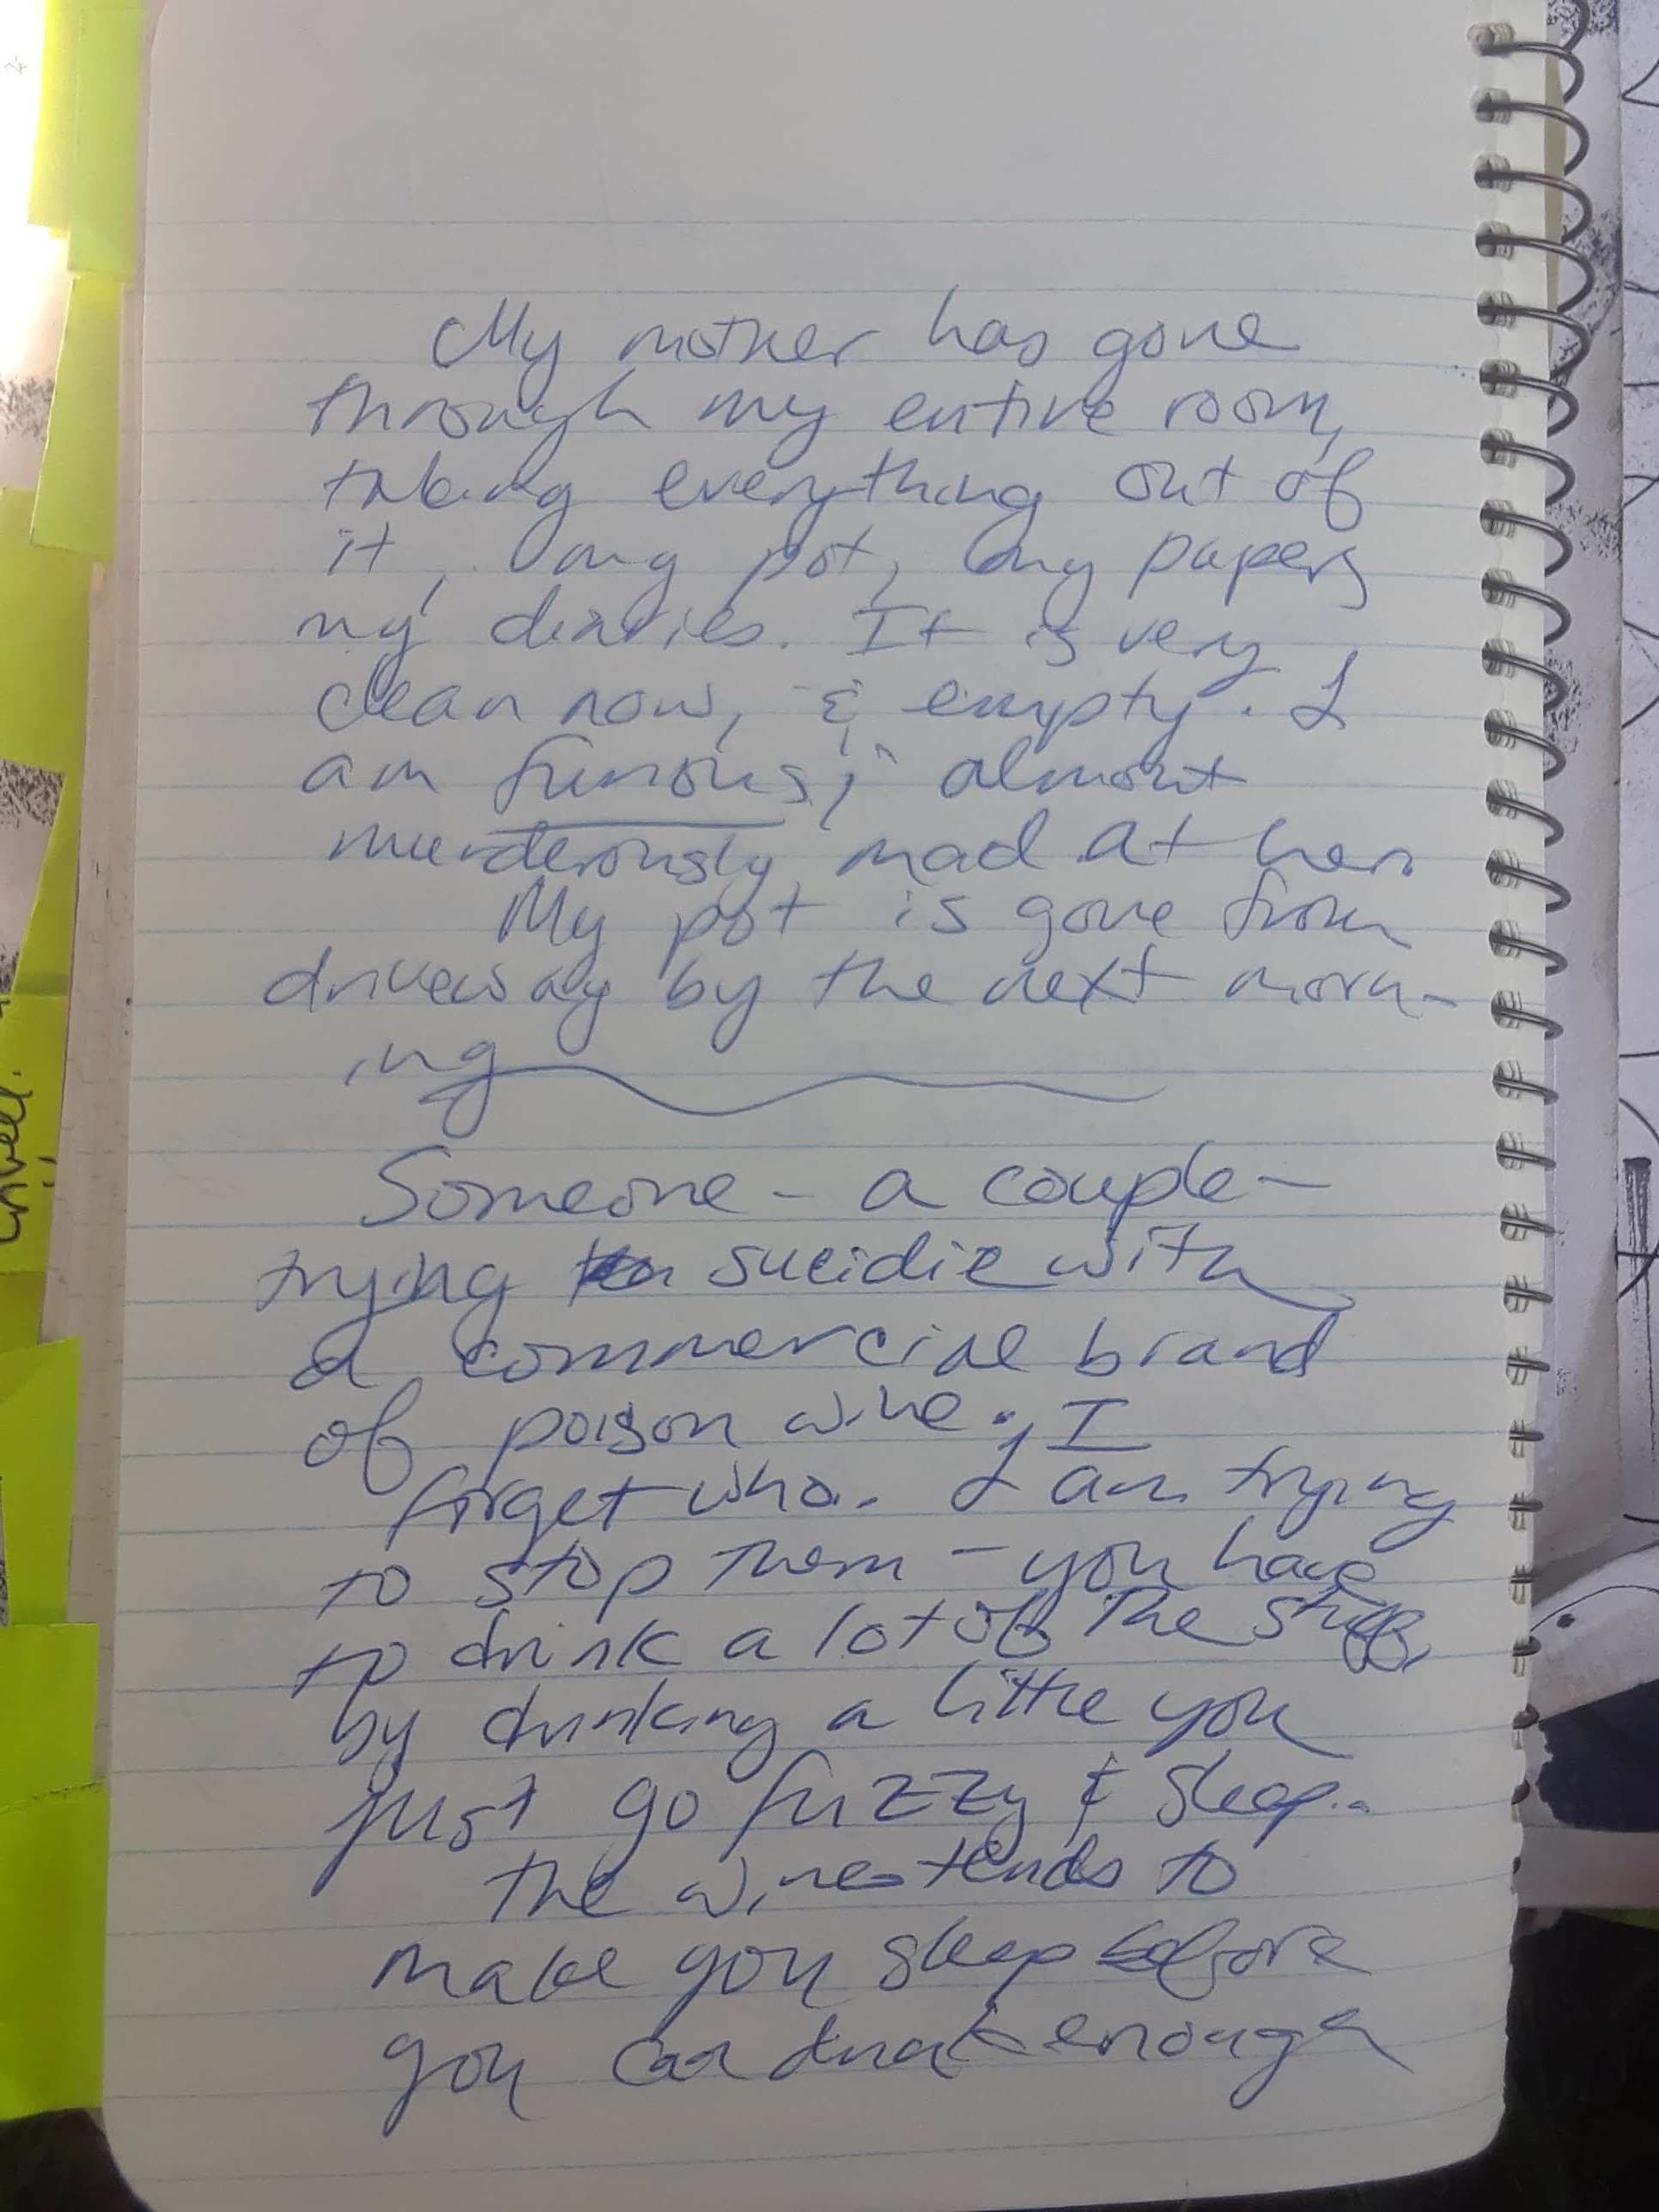 My mother has gone
through my entire room,
taking everything out of
it, my pot, my papers
my diaries. It is very
clean now, & empty. I
am furious, almost
murderously mad at her.
My pot is gone from
driveway by the next morn-
ing
Someone - a couple -
trying suicidie with
a commercial brand
of poison wine, I
forget who. I am trying
to stop them - you have
to drink a lot of the stuff,
by drinking a little you
just go fuzzy & sleep.
The wine tends to
make you sleep before
you can drink enough